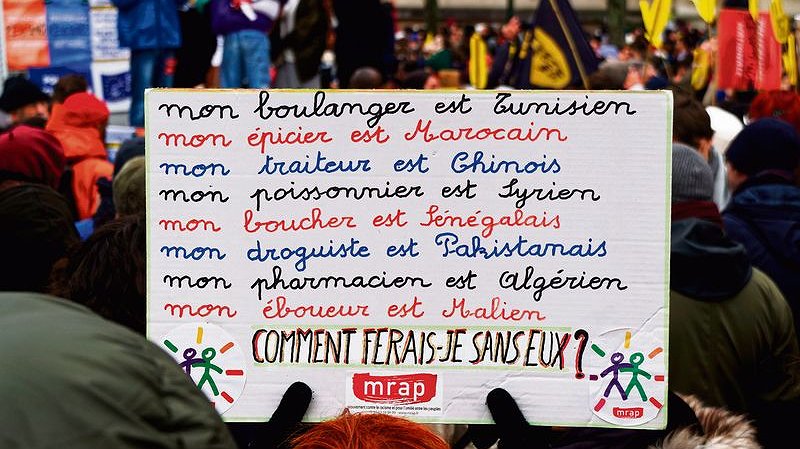 mon boulanger est Tunisien
mon épicier est Marocain
mon traiteur est Chinois
mon poissonnier est Syrien
mon boucher est Sénégalais
mon droguiste est Pakistanais
mon pharmacien est Algérien
mon éboueur est Malien
COMMENT FERAIS-JE SANS EUX ?
mrap
mouvement contre le racisme et pour l'amitié entre les peuples
mrap